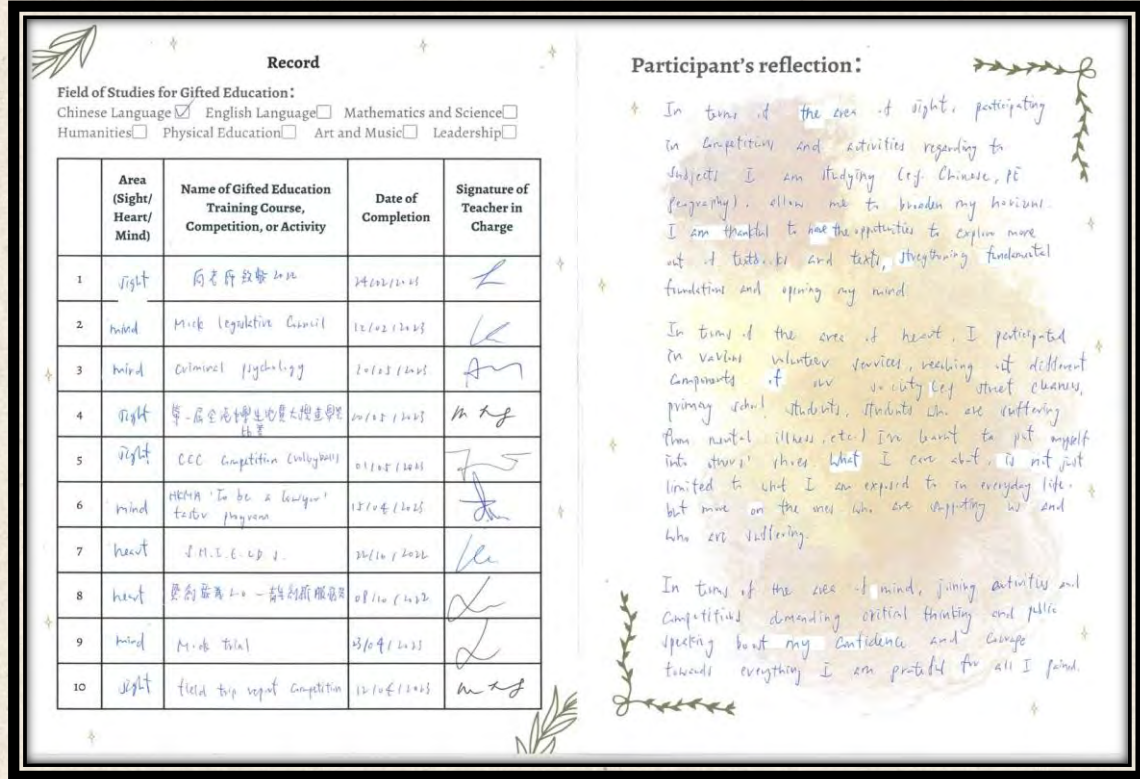 Record
Field of Studies for Gifted Education:
Chinese Language☑ English Language☐ Mathematics and Science☐
Humanities☐ Physical Education☐ Art and Music☐ Leadership☐
Area (Sight/ Heart/ Mind)
Name of Gifted Education Training Course, Competition, or Activity
Date of Completion
Signature of Teacher in Charge
1 sight 2022 24/02/2023
2 mind Mock Legislative Council 12/02/2023
3 mind Criminal psychology 20/05/2023
4 sight 20/05/2023
比賽
5 sight CCC Competition (volleyball) 01/05/2023
6 mind HKMA 'To be a lawyer' 15/04/2023
taster program
7 heart S.M.I.E.L.D.S. 22/10/2022
8 heart 2.0 08/10/2022
9 mind Mock trial 23/04/2023
10 sight field trip report Competition 12/04/2023
Participant's reflection:
In terms of the area of sight, participating
in Competitions and activities regarding to
subjects I am studying (eg. Chinese, PE
geography), allow me to broaden my horizons.
I am thankful to have the opportunities to explore more
out of textbooks and texts, strengthening fundamental
foundations and opening my mind
In terms of the area of heart, I participated
in various volunteer services, reaching out different
Components of our society (eg street cleaners,
primary school students, students who are suffering
from mental illness, etc) I've learnt to put myself
into others' shoes What I care about, is not just
limited to what I am exposed to in everyday life.
but more on the ones who are supporting us and
who are suffering.
In terms of the area of mind, joining activities and
Competitions demanding critical thinking and public
speaking boost my Confidence and Courage
towards everything I am grateful for all I gained.